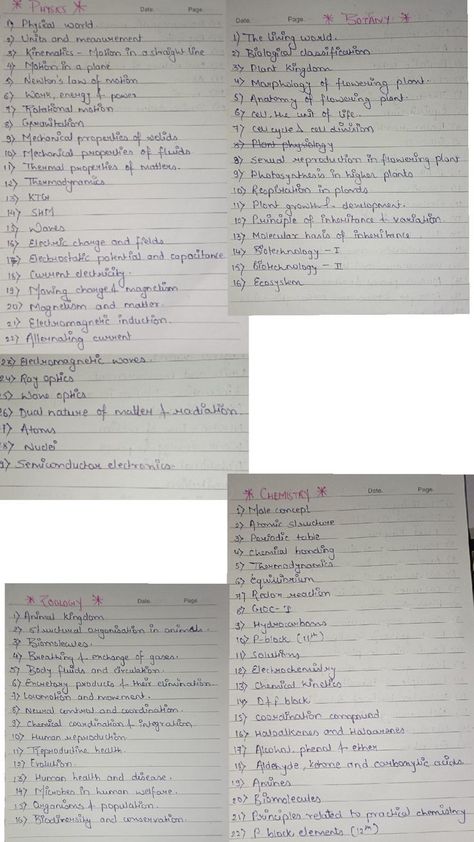 * PHYSICS *
Date. Page.
1) Physical world.
2) Units and measurement
3) Kinematics - Motion in a straight line
4) Motion in a plane
5) Newton's law of motion
6) Work, energy & power
7) Rotational motion
8) Gravitation
9) Mechanical properties of solids
10) Mechanical properties of fluids
11) Thermal properties of matters.
12) Thermodynamics
13) KTG
14) SHM
15) Waves
16) Electric charge and fields
17) Electrostatic potential and capacitance
18) Current electricity.
19) Moving charge & magnetism
20) Magnetism and matter.
21) Electromagnetic induction.
22) Alternating current
23) Electromagnetic waves.
24) Ray optics
5) Wave optics
26) Dual nature of matter & radiation
7) Atoms
8) Nuclei
9) Semiconductor electronics.
* BOTANY *
Date. Page.
1) The living world.
2) Biological classification
3) Plant kingdom
4) Morphology of flowering plant.
5) Anatomy of flowering plant.
6) Cell the unit of life.
7) Cell cycle & cell division
8) Plant physiology
8) Sexual reproduction in flowering plant
9) Photosynthesis in higher plants
10) Respiration in plants
11) Plant growth & development.
12) Principle of inheritance & variation.
13) Molecular basis of inheritance
14) Biotechnology - I
15) Biotechnology - II
16) Ecosystem
* ZOOLOGY *
Date. Page.
1) Animal kingdom
2) Structural organisation in animals.
3) Biomolecules.
4) Breathing & exchange of gases.
5) Body fluids and circulation.
6) Excretory products & their elimination.
7) Locomotion and movement.
8) Neural control and coordination.
9) Chemical coordination & integration.
10) Human reproduction
11) Reproductive health.
12) Evolution.
13) Human health and disease.
14) Microbes in human welfare.
15) Organisms & population.
16) Biodiversity and conservation.
* CHEMISTRY *
Date. Page.
1) Mole concept
2) Atomic structure
3) Periodic table
4) Chemical bonding
5) Thermodynamics
6) Equilibrium
7) Redox reaction
8) GOC-I
9) Hydrocarbons
10) P-block (11th)
11) Solutions
12) Electrochemistry
13) Chemical kinetics
14) D & f block
15) Coordination compound
16) Haloalkenes and Haloarenes
17) Alcohol, phenol & ether
18) Aldehyde, ketone and carboxylic acids
19) Amines
20) Biomolecules
21) Principles related to practical chemistry
22) P block elements (12th)